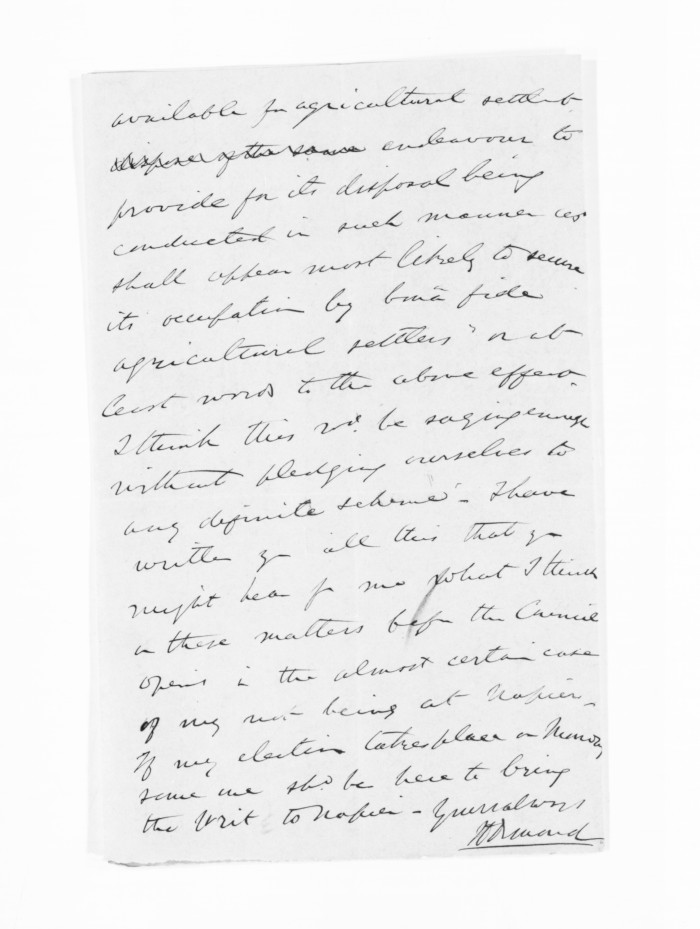 available for agricultural settlet
dispose of the same endeavour to
provide for its disposal being
conducted in such manner as
shall appear most likely to secure
its occupation by bonâ fide
agricultural settlers" or at
least words to the above effect.
I think this wd. be saying enough
without pledging ourselves to
any definite scheme - I have
written yr all this that yr
might hear fr me what I think
on these matters before the Council
opens in the almost certain case
of my not being at Napier -
If my election takes place on Monday
some one shd. be here to bring
the Writ to Napier - Yours always
JD Ormond